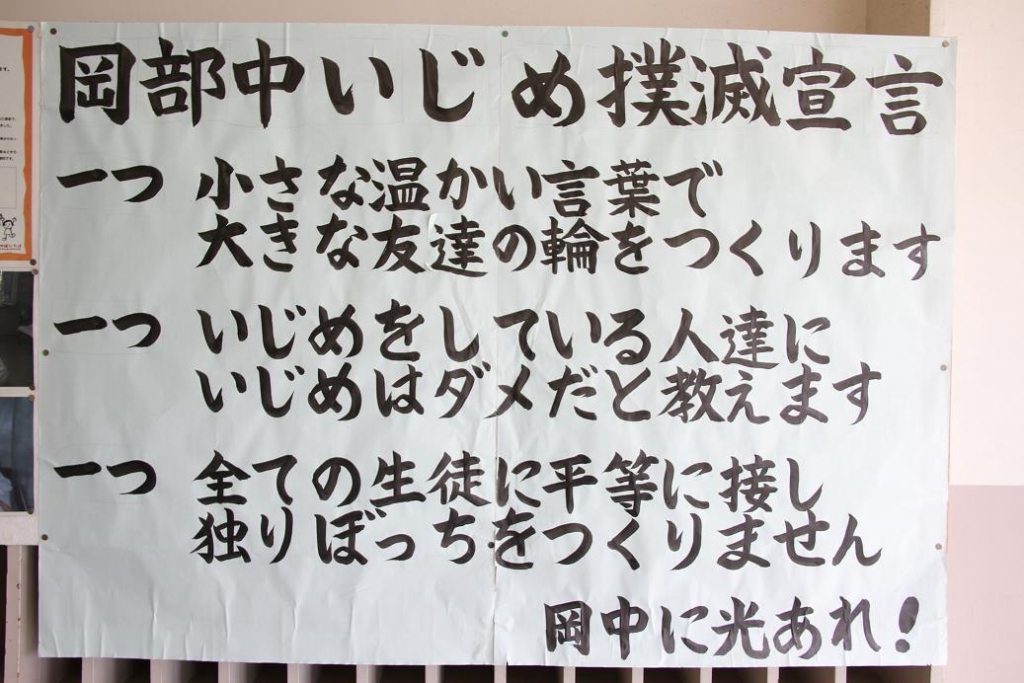 岡部中いじめ撲滅宣言
一つ 小さな温かい言葉で
大きな友達の輪をつくります
一つ いじめをしている人達に
いじめはダメだと教えます
一つ 全ての生徒に平等に接し
独りぼっちをつくりません
岡中に光あれ！